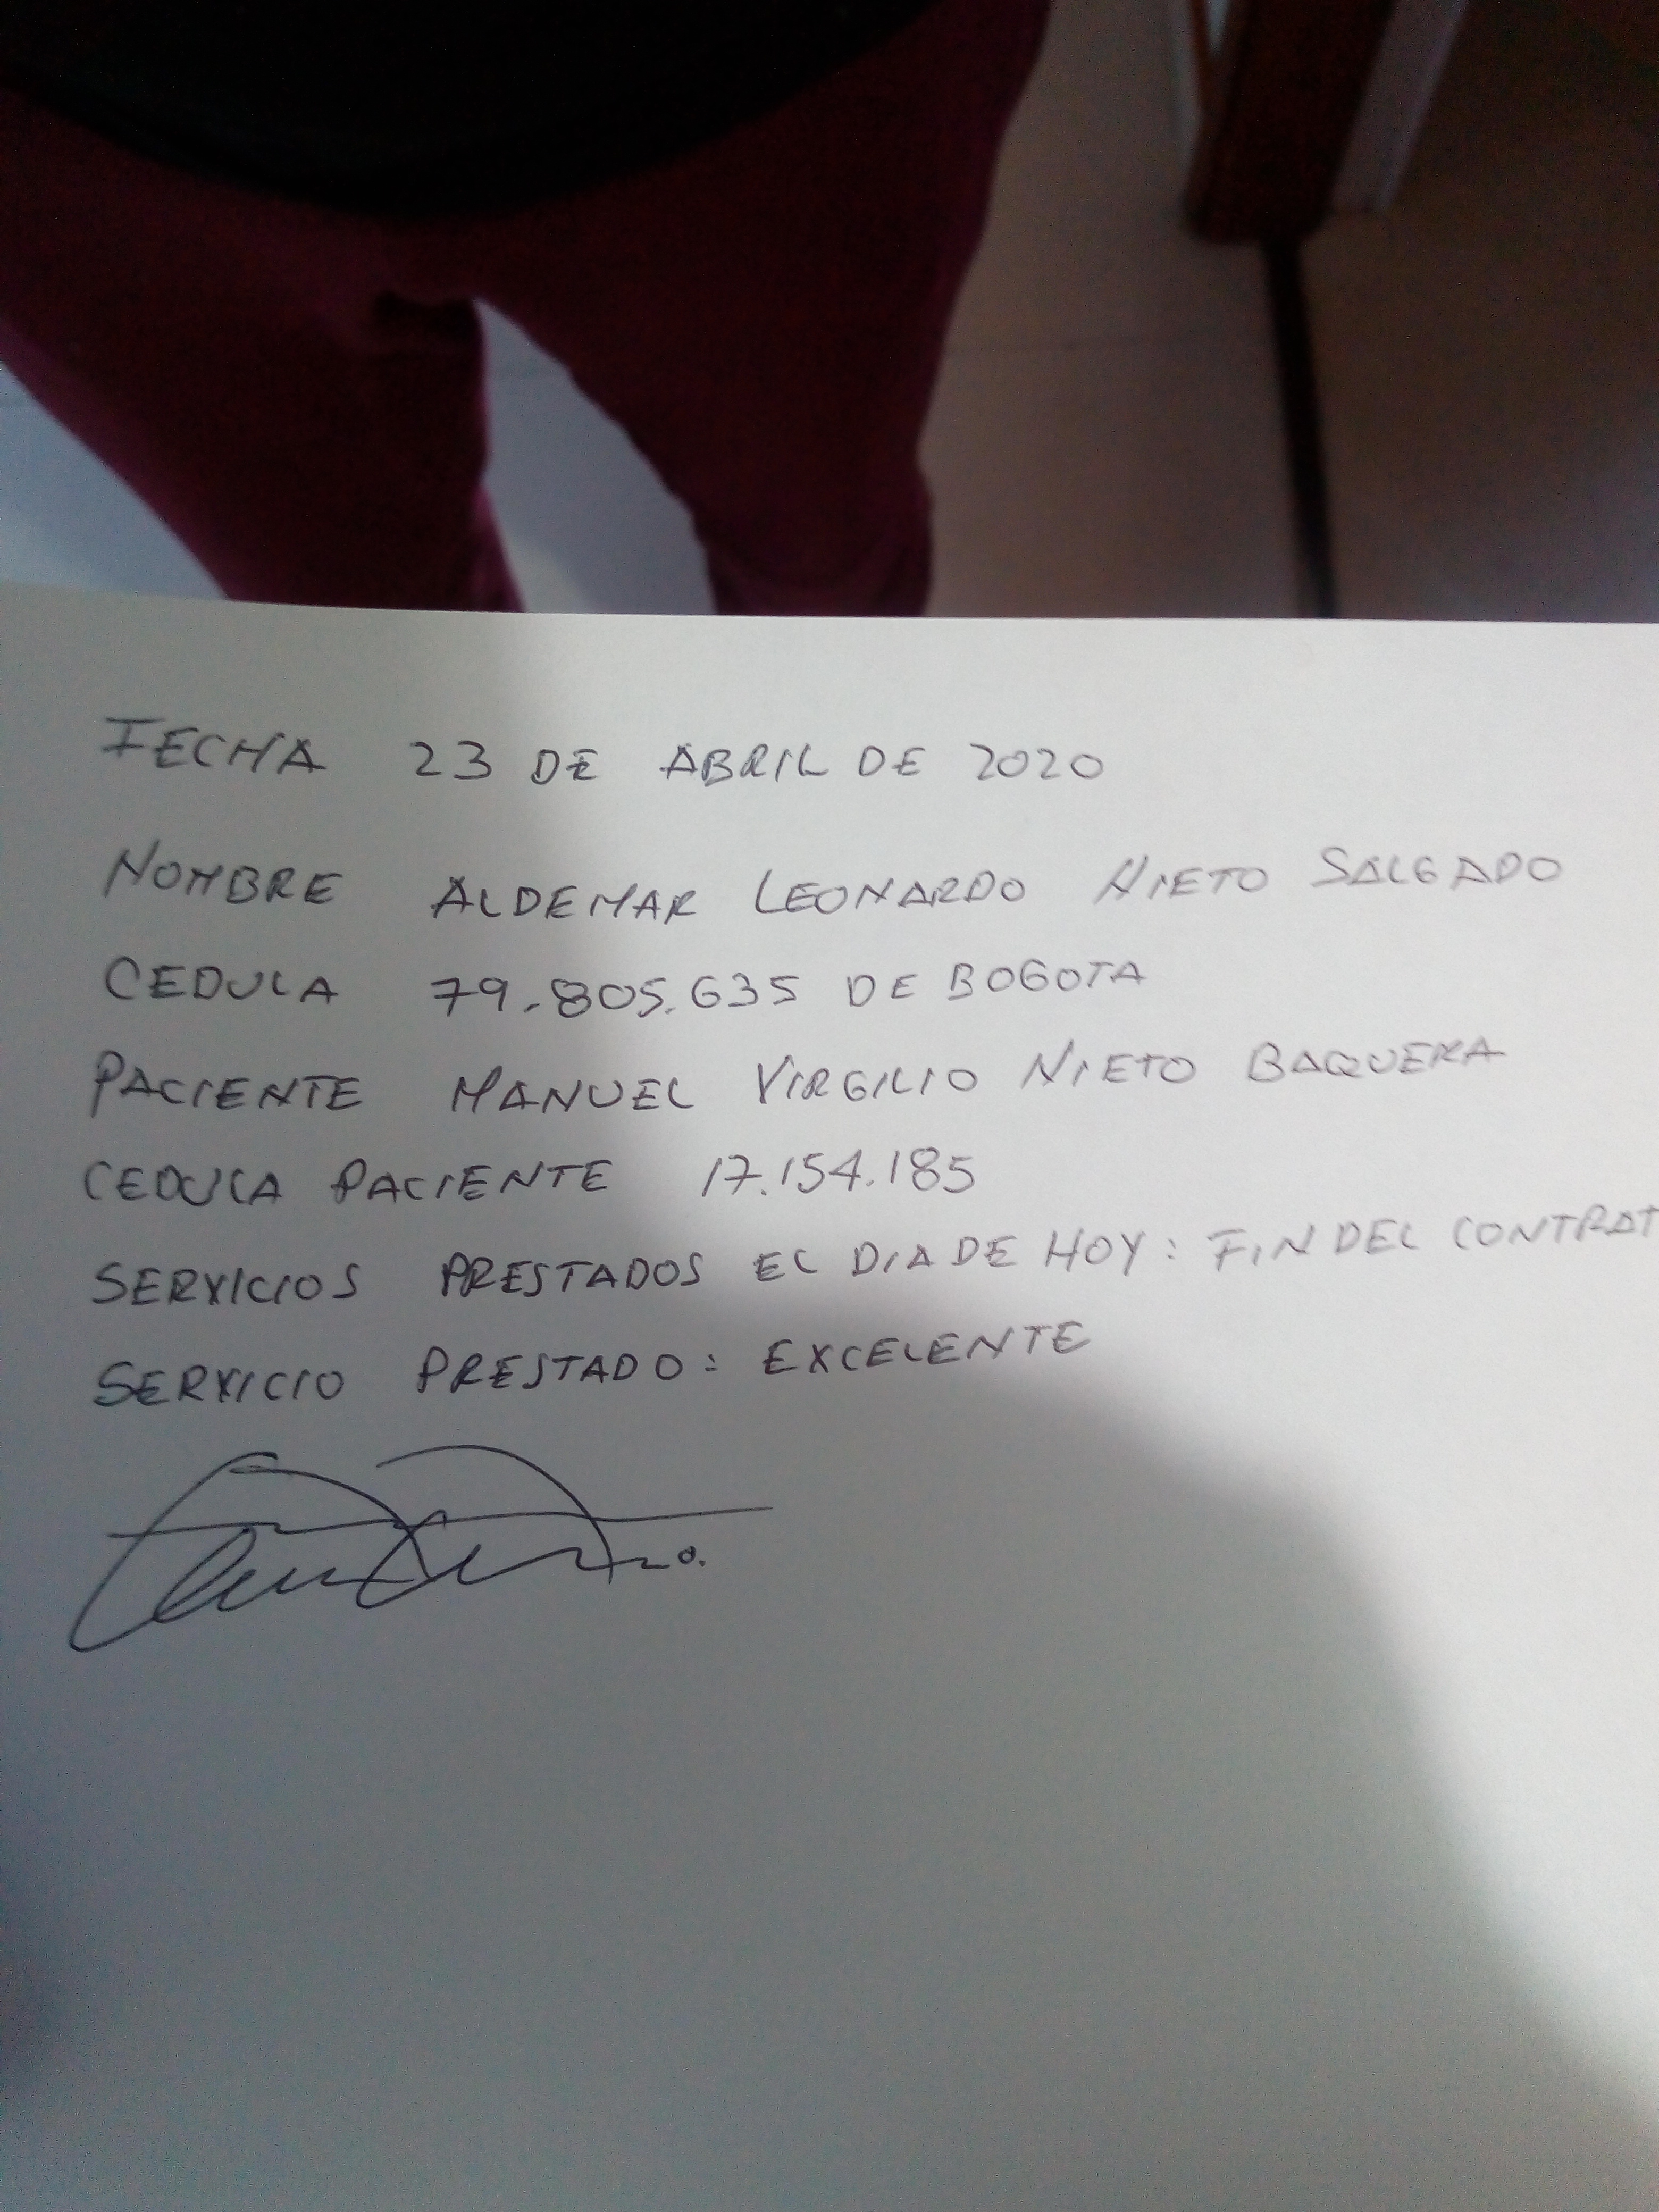 FECHA 23 DE ABRIL DE 2020
NOMBRE ALDEMAR LEONARDO NIETO SALGADO
CEDULA 79.805.635 DE BOGOTA
PACIENTE MANUEL VIRGILIO NIETO BAQUERA
CEDULA PACIENTE 17.154.185
SERVICIOS PRESTADOS EL DIA DE HOY: FIN DEL CONTRAT
SERVICIO PRESTADO: EXCELENTE